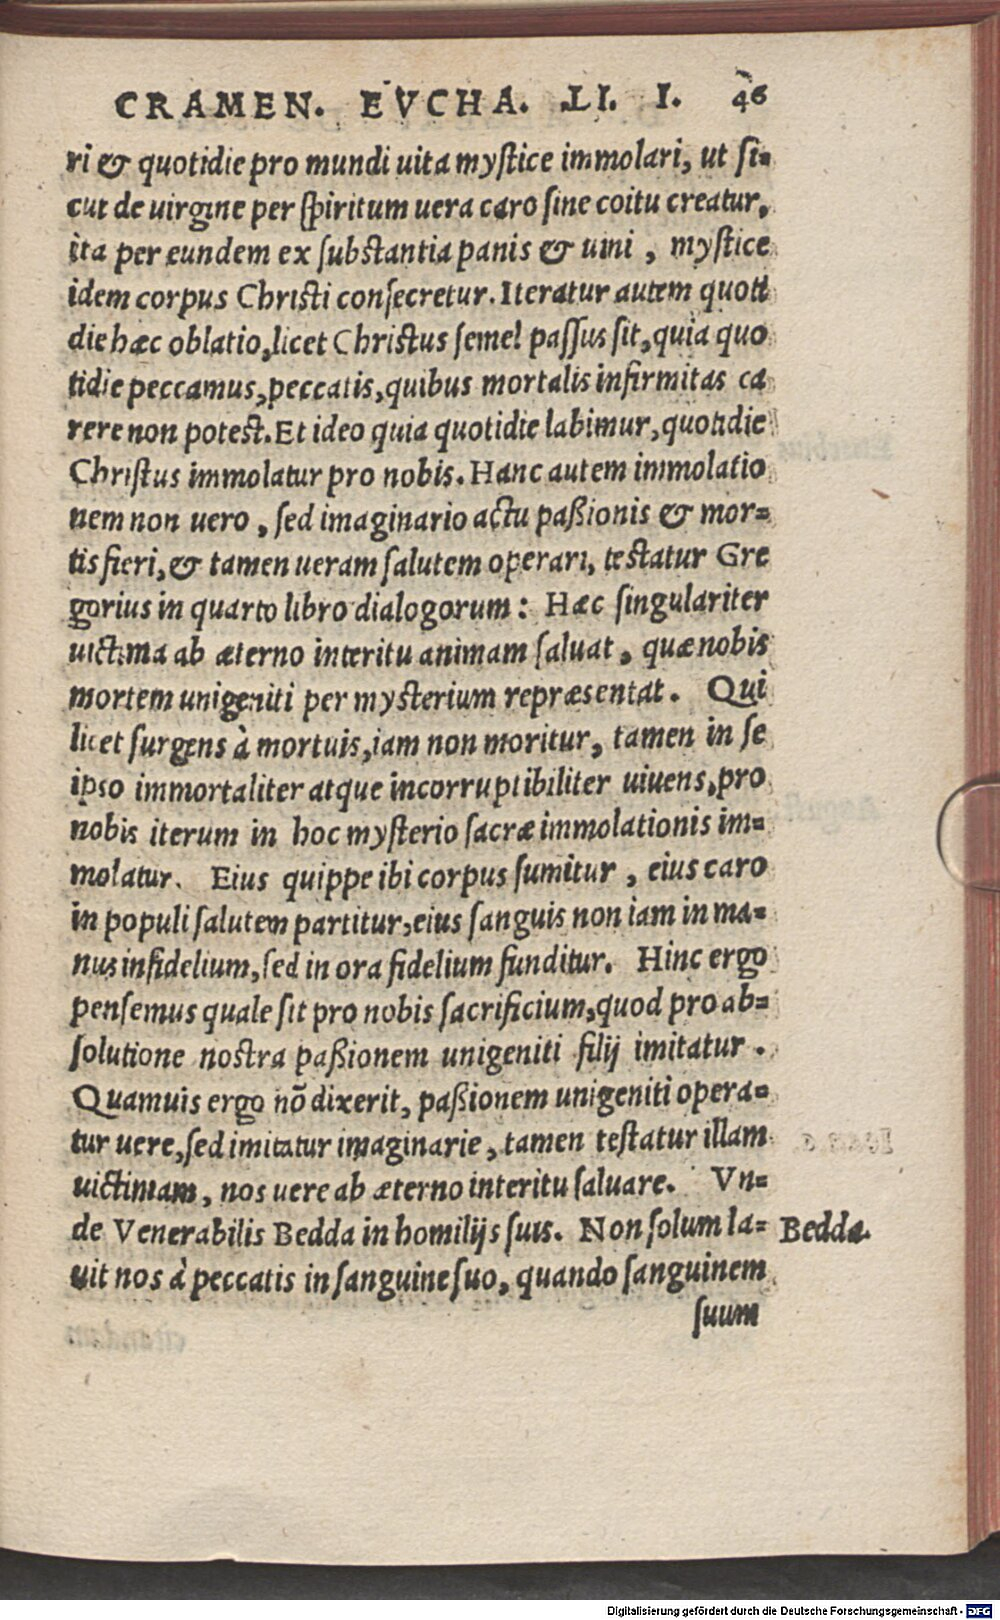 CRAMEN. EVCHA. LI. I. 46
ri & quotidie pro mundi uita mystice immolari, ut si=
cut de uirgine per spiritum uera caro sine coitu creatur,
ita per eundem ex substantia panis & uini, mystice
idem corpus Christi consecretur. Iteratur autem quoti
die hæc oblatio, licet Christus semel passus sit, quia quo
tidie peccamus, peccatis, quibus mortalis infirmitas ca
rere non potest. Et ideo quia quotidie labimur, quotidie
Christus immolatur pro nobis. Hanc autem immolatio
nem non uero, sed imaginario actu paßionis & mor=
tis fieri, & tamen ueram salutem operari, testatur Gre
gorius in quarto libro dialogorum: Hæc singulariter
uictima ab æterno interitu animam saluat, quæ nobis
mortem unigeniti per mysterium repræsentat. Qui
licet surgens à mortuis, iam non moritur, tamen in se
ipso immortaliter atque incorruptibiliter uiuens, pro
nobis iterum in hoc mysterio sacræ immolationis im=
molatur. Eius quippe ibi corpus sumitur, eius caro
in populi salutem partitur, eius sanguis non iam in ma=
nus infidelium, sed in ora fidelium funditur. Hinc ergo
pensemus quale sit pro nobis sacrificium, quod pro ab=
solutione nostra paßionem unigeniti filij imitatur.
Quamuis ergo nõ dixerit, paßionem unigeniti opera=
tur uere, sed imitatur imaginarie, tamen testatur illam
uictimam, nos uere ab æterno interitu saluare. Vn=
de Venerabilis Bedda in homilijs suis. Non solum la= Bedda.
uit nos à peccatis in sanguine suo, quando sanguinem
suum
Digitalisierung gefördert durch die Deutsche Forschungsgemeinschaft - DFG